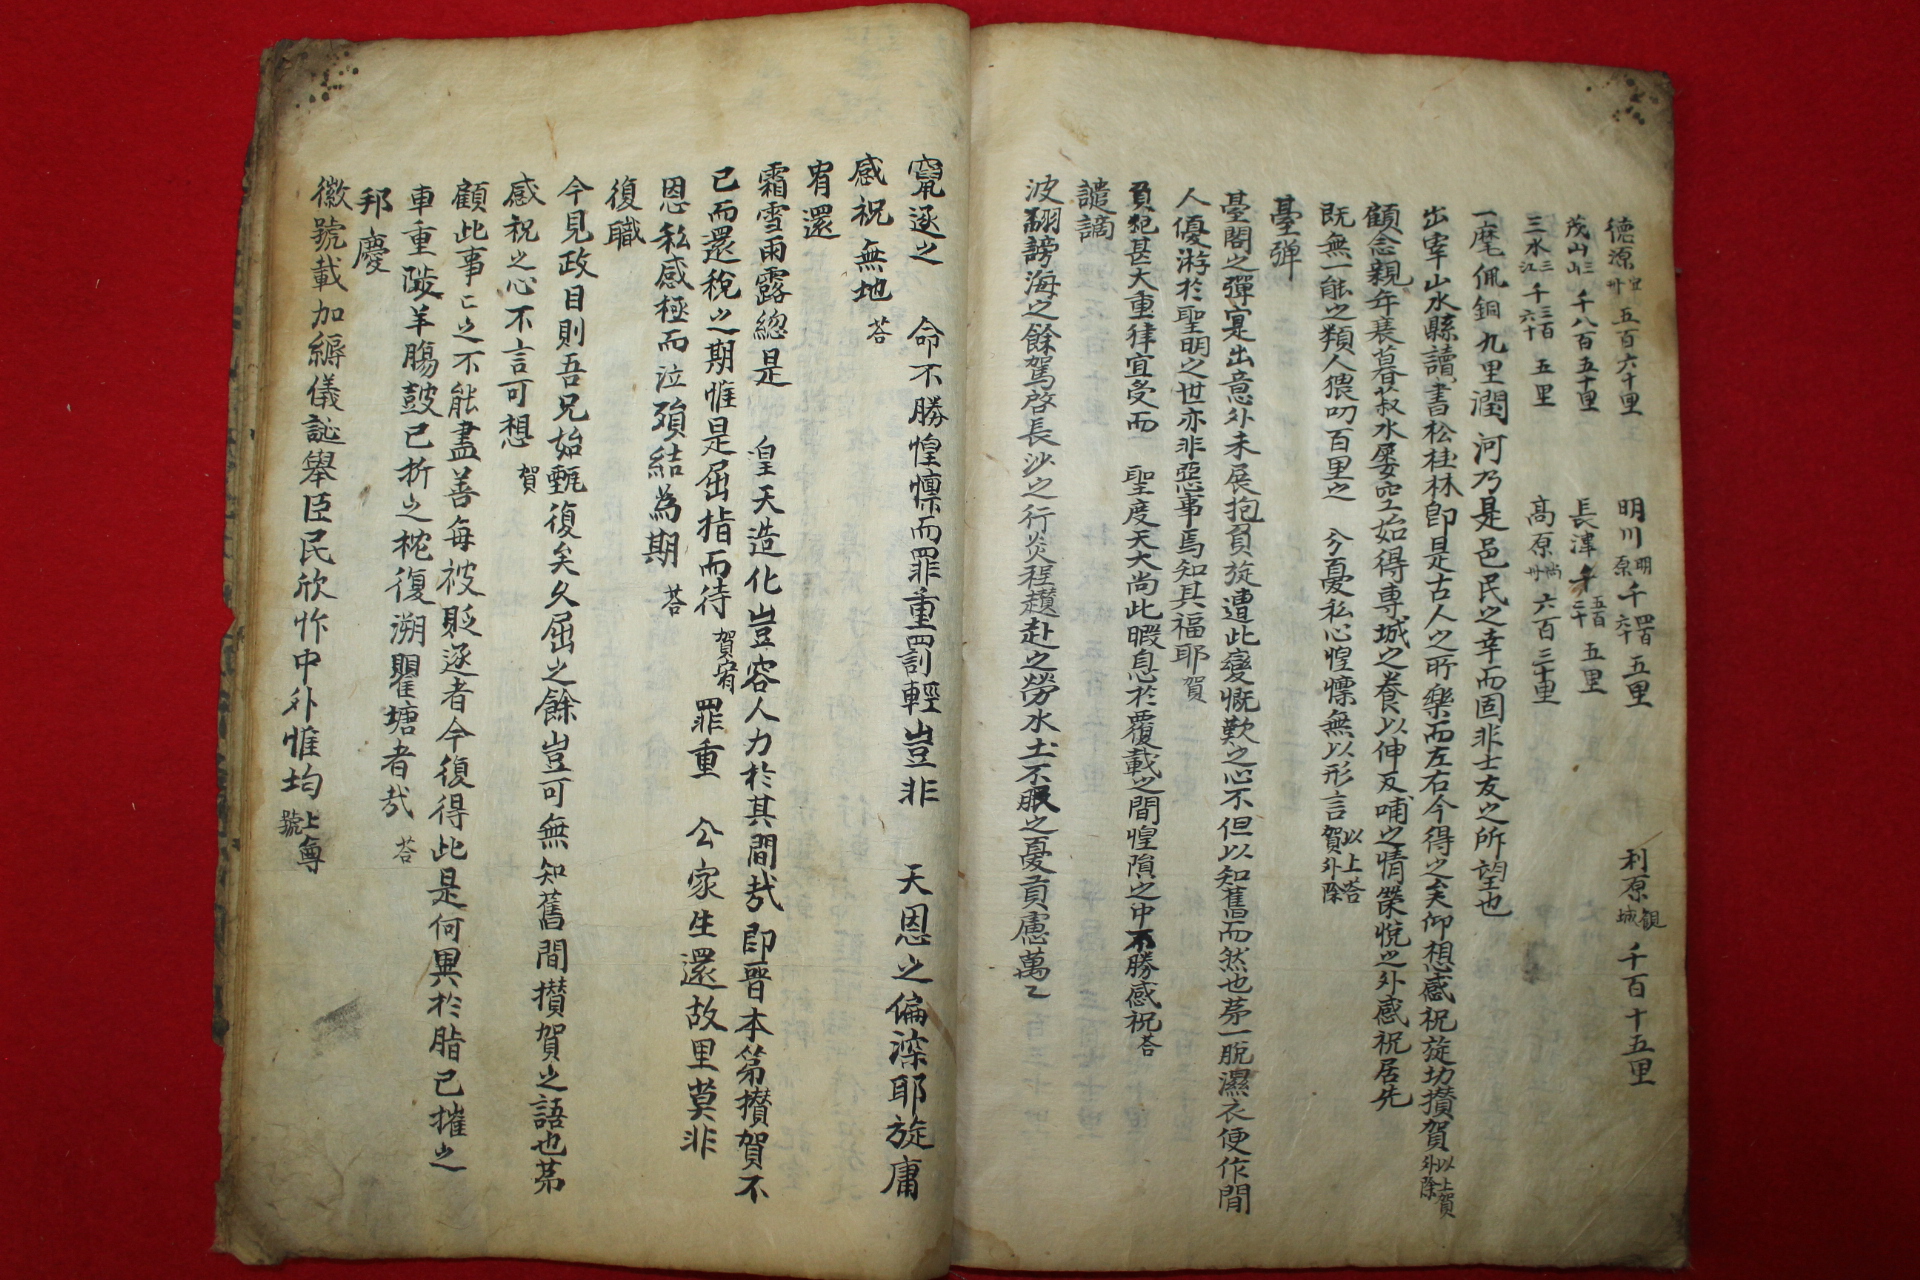 德源宜州 五百六十里 明川明原 千四百六十五里 利原觀城 千百十五里
茂山三山 千八百五十里 長津 千五百二十五里
三水三江 千三百六十五里 高原 六百三十里
一麾佩銅九里潤河乃是邑民之幸而固非士友之所望也
出宰山水縣讀書松桂林卽是古人之所樂而左右今得之矣仰想感祝旋切攢賀以上賀外除
顧念親年衰暮菽水屢空始得專城之養以伸反哺之情榮悅之外感祝居先
旣無一能之類人猥叨百里之 分憂私心惶慄無以形言以上答賀外除
臺彈
臺閣之彈寔出意外未展抱負旋遭此變慨歎之心不但以知舊而然也第一脫濕衣便作閒
人優游於聖明之世亦非惡事焉知其福耶賀
負犯甚大重律宜受而 聖度天大尚此暇息於覆載之間惶隕之中不勝感祝答
譴謫
波翻謗海之餘駕啓長沙之行炎程趲赴之勞水土不服之憂貢慮萬乙
竄逐之 命不勝惶懍而罪重罰輕豈非 天恩之偏深耶旋庸
感祝無地 答
宥還
霜雪雨露總是 皇天造化豈容人力於其間哉卽晋本第攢賀不
已而還稅之期惟是屈指而待賀宥 罪重 公家生還故里莫非
恩私感極而泣殞結為期 答
復職
今見政目則吾兄始甄復矣久屈之餘豈可無知舊間攢賀之語也第
感祝之心不言可想 賀
顧此事亡之不能盡善每被貶逐者今復得此是何異於脂已摧之
車重陟羊腸鼓已折之枕復溯瞿塘者哉 答
邦慶
徽號載加縟儀誕擧臣民欣忭中外惟均上尊號